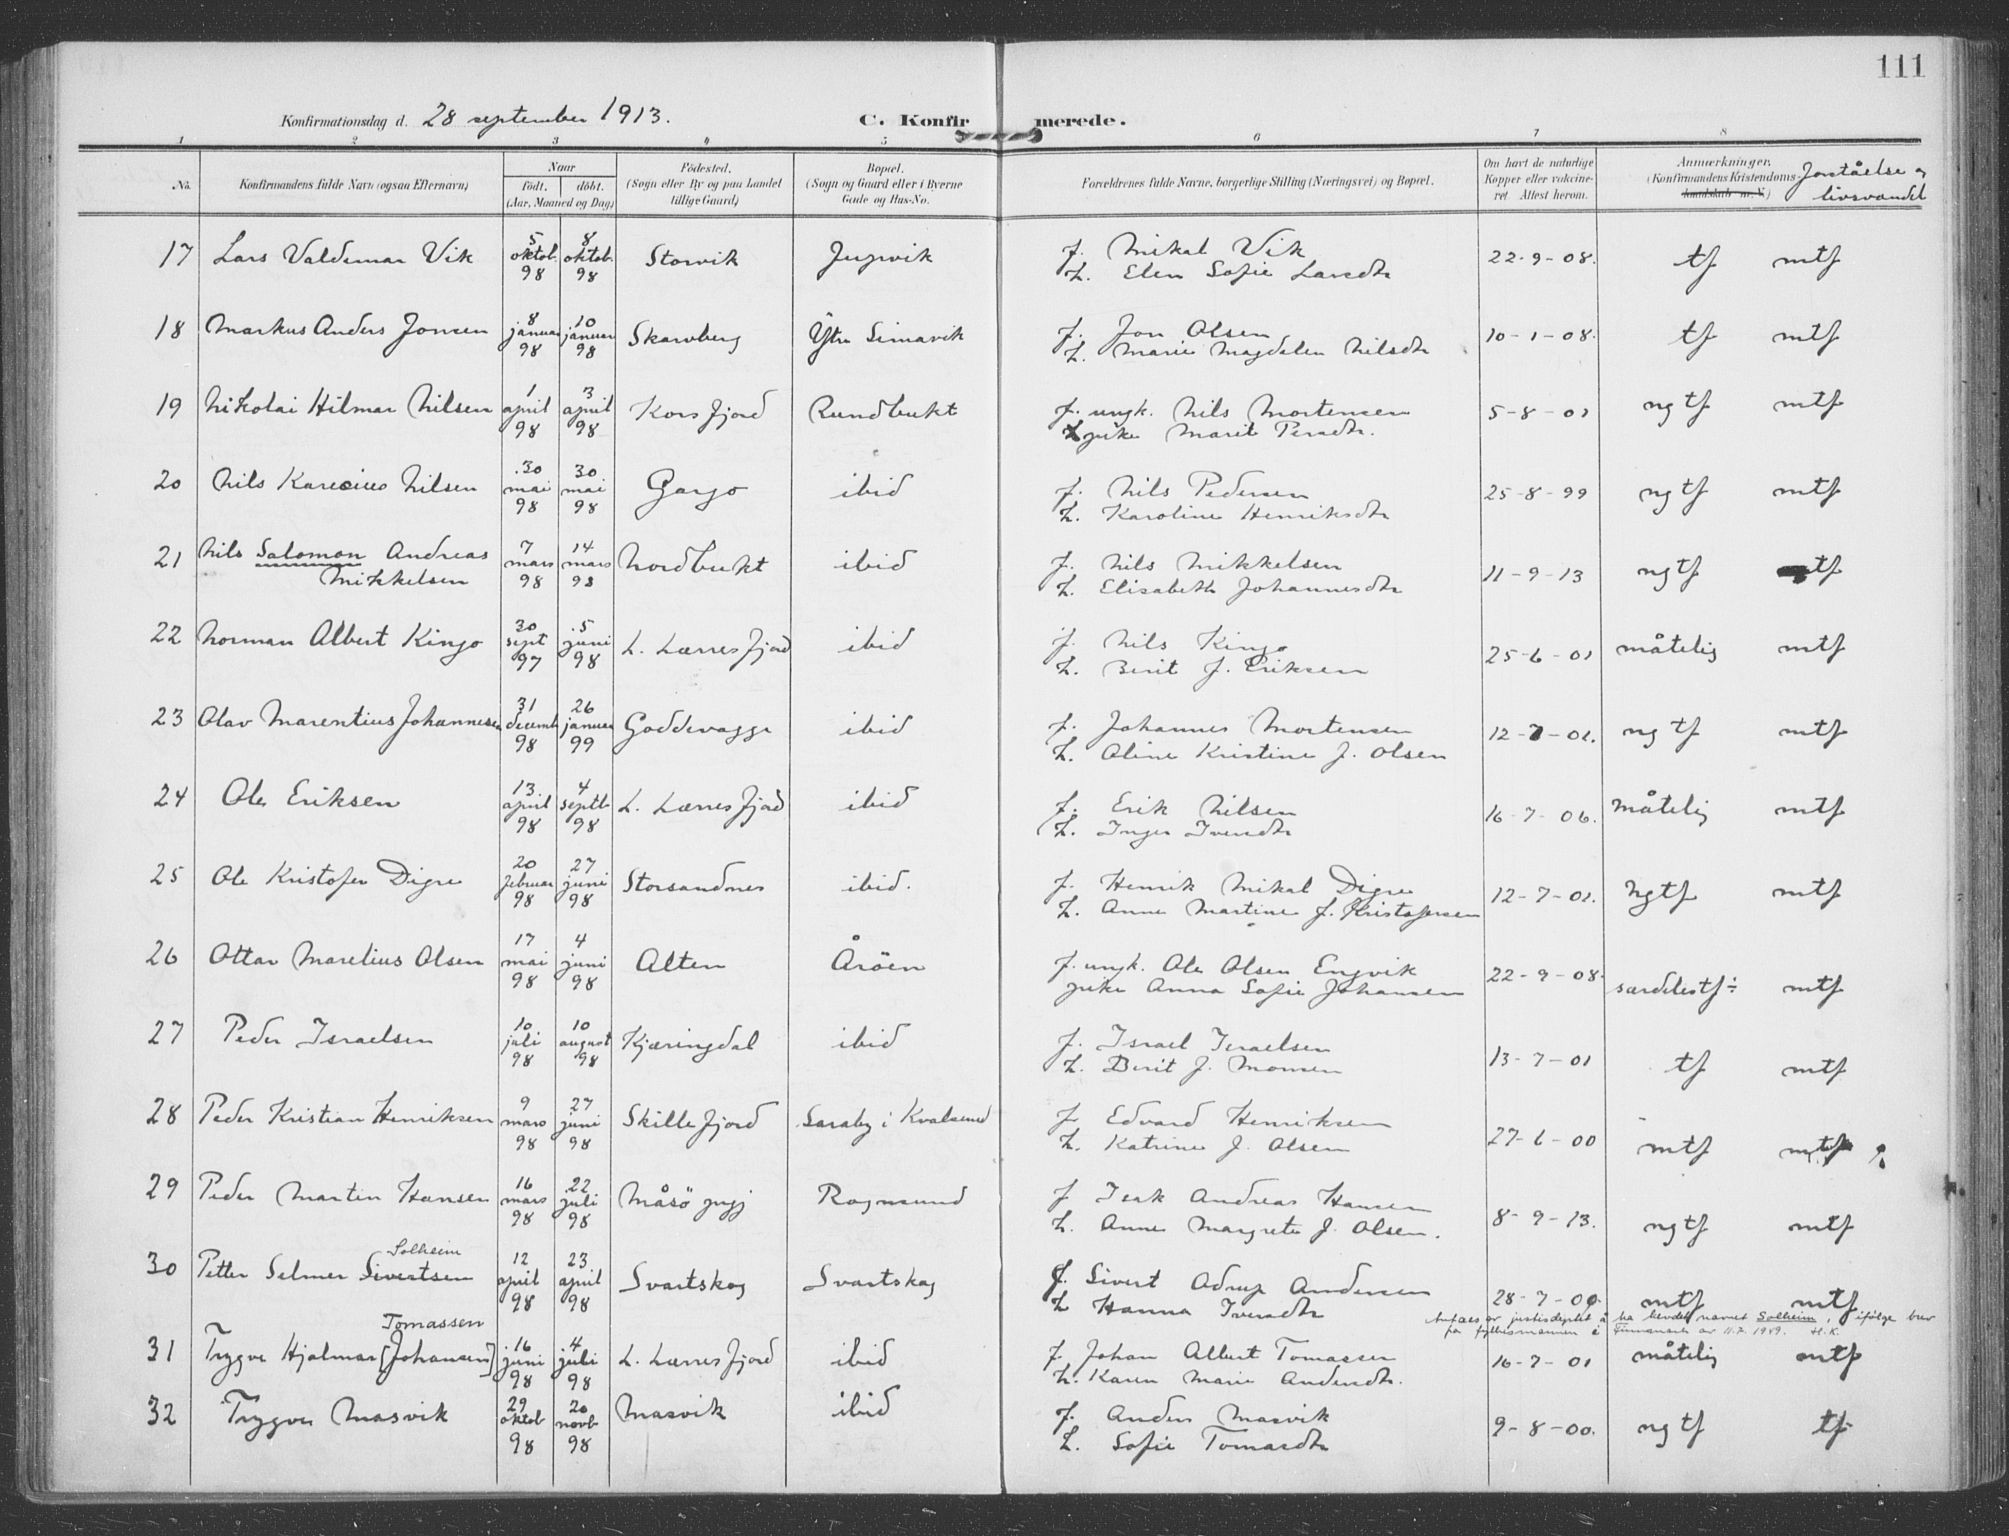 111
Konfirmationsdag d. 28 september 1913. C. Konfirmerede.
1 2 3 4 5 6 7 8
No. Konfirmandens fulde Navn (ogsaa Efternavn) Naar født. døbt. (Aar, Maaned og Dag) Fødested. (Sogn eller By og paa Landet tillige Gaard) Bopæl. (Sogn og Gaard eller i Byerne Gade og Hus-No. Forældrenes fulde Navne, borgerlige Stilling (Næringsvei) og Bopæl. Om havt de naturlige Kopper eller vakcineret Attest herom. Anmærkninger. (Konfirmandens Kristendomskundskab m. V.) forståelse og livsvandel
17 Lars Valdemar Vik 5 oktob. 98 8 oktob. 98 Storvik Jupvik f. Mikal Vik 22-9-08. tf mtf
h. Elen Sofie Larsdtr
18 Markus Anders Jonsen 8 januar 98 10 januar 98 Skarvberg Ytre Simavik f. Jon Olsen 10-1-08. tf mtf
h. Marie Magdalen Nilsdtr
19 Nikolai Hilmar Nilsen 1 april 98 3 april 98 Korsfjord Rundbukt f. ungk. Nils Mortensen 5-8-01 ngtf mtf
pike Marit Persdtr.
20 Nils Karesius Nilsen 30 mai 98 30 mai 98 Gargo ibid f. Nils Pedersen 25-8-99 ngtf mtf
h. Karoline Henriksdtr
21 Nils Salomon Andreas Mikkelsen 7 mars 98 14 mars 98 Nordbukt ibid f. Nils Mikkelsen 11-9-13 ngtf tf
h. Elisabeth Johannesdtr
22 Norman Albert Kingo 30 sept 97 5 juni 98 L. Lerresfjord ibid f. Nils Kingo 25-6-01 måtelig mtf
h. Berit f. Eriksen
23 Olav Marentius Johannesen 31 decemb 98 26 januar 99 Goddevagge ibid f. Johannes Mortensen 12-7-01. ngtf mtf
h. Oline Kristine f. Olsen
24 Ole Eriksen 13 april 98 4 septb 98 L. Lerresfjord ibid f. Erik Nilsen 16-7-06. måtelig mtf
h. Inger Iversdtr
25 Ole Kristofer Digre 20 februar 98 27 juni 98 Storsandnes ibid. f. Henrik Mikal Digre 12-7-01. ngtf mtf
h. Anne Martine f. Kristofersen
26 Ottar Marelius Olsen 17 mai 98 4 juni 98 Alten Årøen f. ungk. Ole Olsen Engvik 22-9-08. særdelestf÷ mtf
pike Anna Sofie Johansen
27 Peder Israelsen 10 juli 98 10 august 98 Kjæringdal ibid f. Israel Israelsen 13-7-01 tf mtf
h. Berit f. Monsen
28 Peder Kristian Henriksen 9 mars 98 27 juni 98 Skillefjord Saraby i Kvalsund f. Edvard Henriksen 27-6-00 mtf mtf
h. Katrine f. Olsen
29 Peder Martin Hansen 16 mars 98 22 juli 98 Måsø pgj Rognsund f. Isak Andreas Hansen 8-9-13. ngtf mtf
h. Anne Margrete f. Olsen.
Solheim
30 Petter Selmer Sivertsen 12 april 98 23 april 98 Svartskog Svartskog f. Sivert Adrup Andersen 28-7-00. mtf mtf
h. Hanna Iversdtr
Antaes av justisdeptet å ha hevdet navnet Solheim, ifølge brev
fra fylkesmannen i Finnmark av 11.7.1949. H.K.
Tomassen
31 Trygve Hjalmar [Johansen] 16 juni 98 4 juli 98 L. Lerresfjord ibid f. Johan Albert Tomassen 16-7-01 måtelig mtf
h. Karen Marie Andersdtr.
32 Trygve Masvik 29 oktob 98 20 novb 98 Masvik ibid f. Anders Masvik 9-8-00. ngtf tf
h. Sofie Tomasdtr